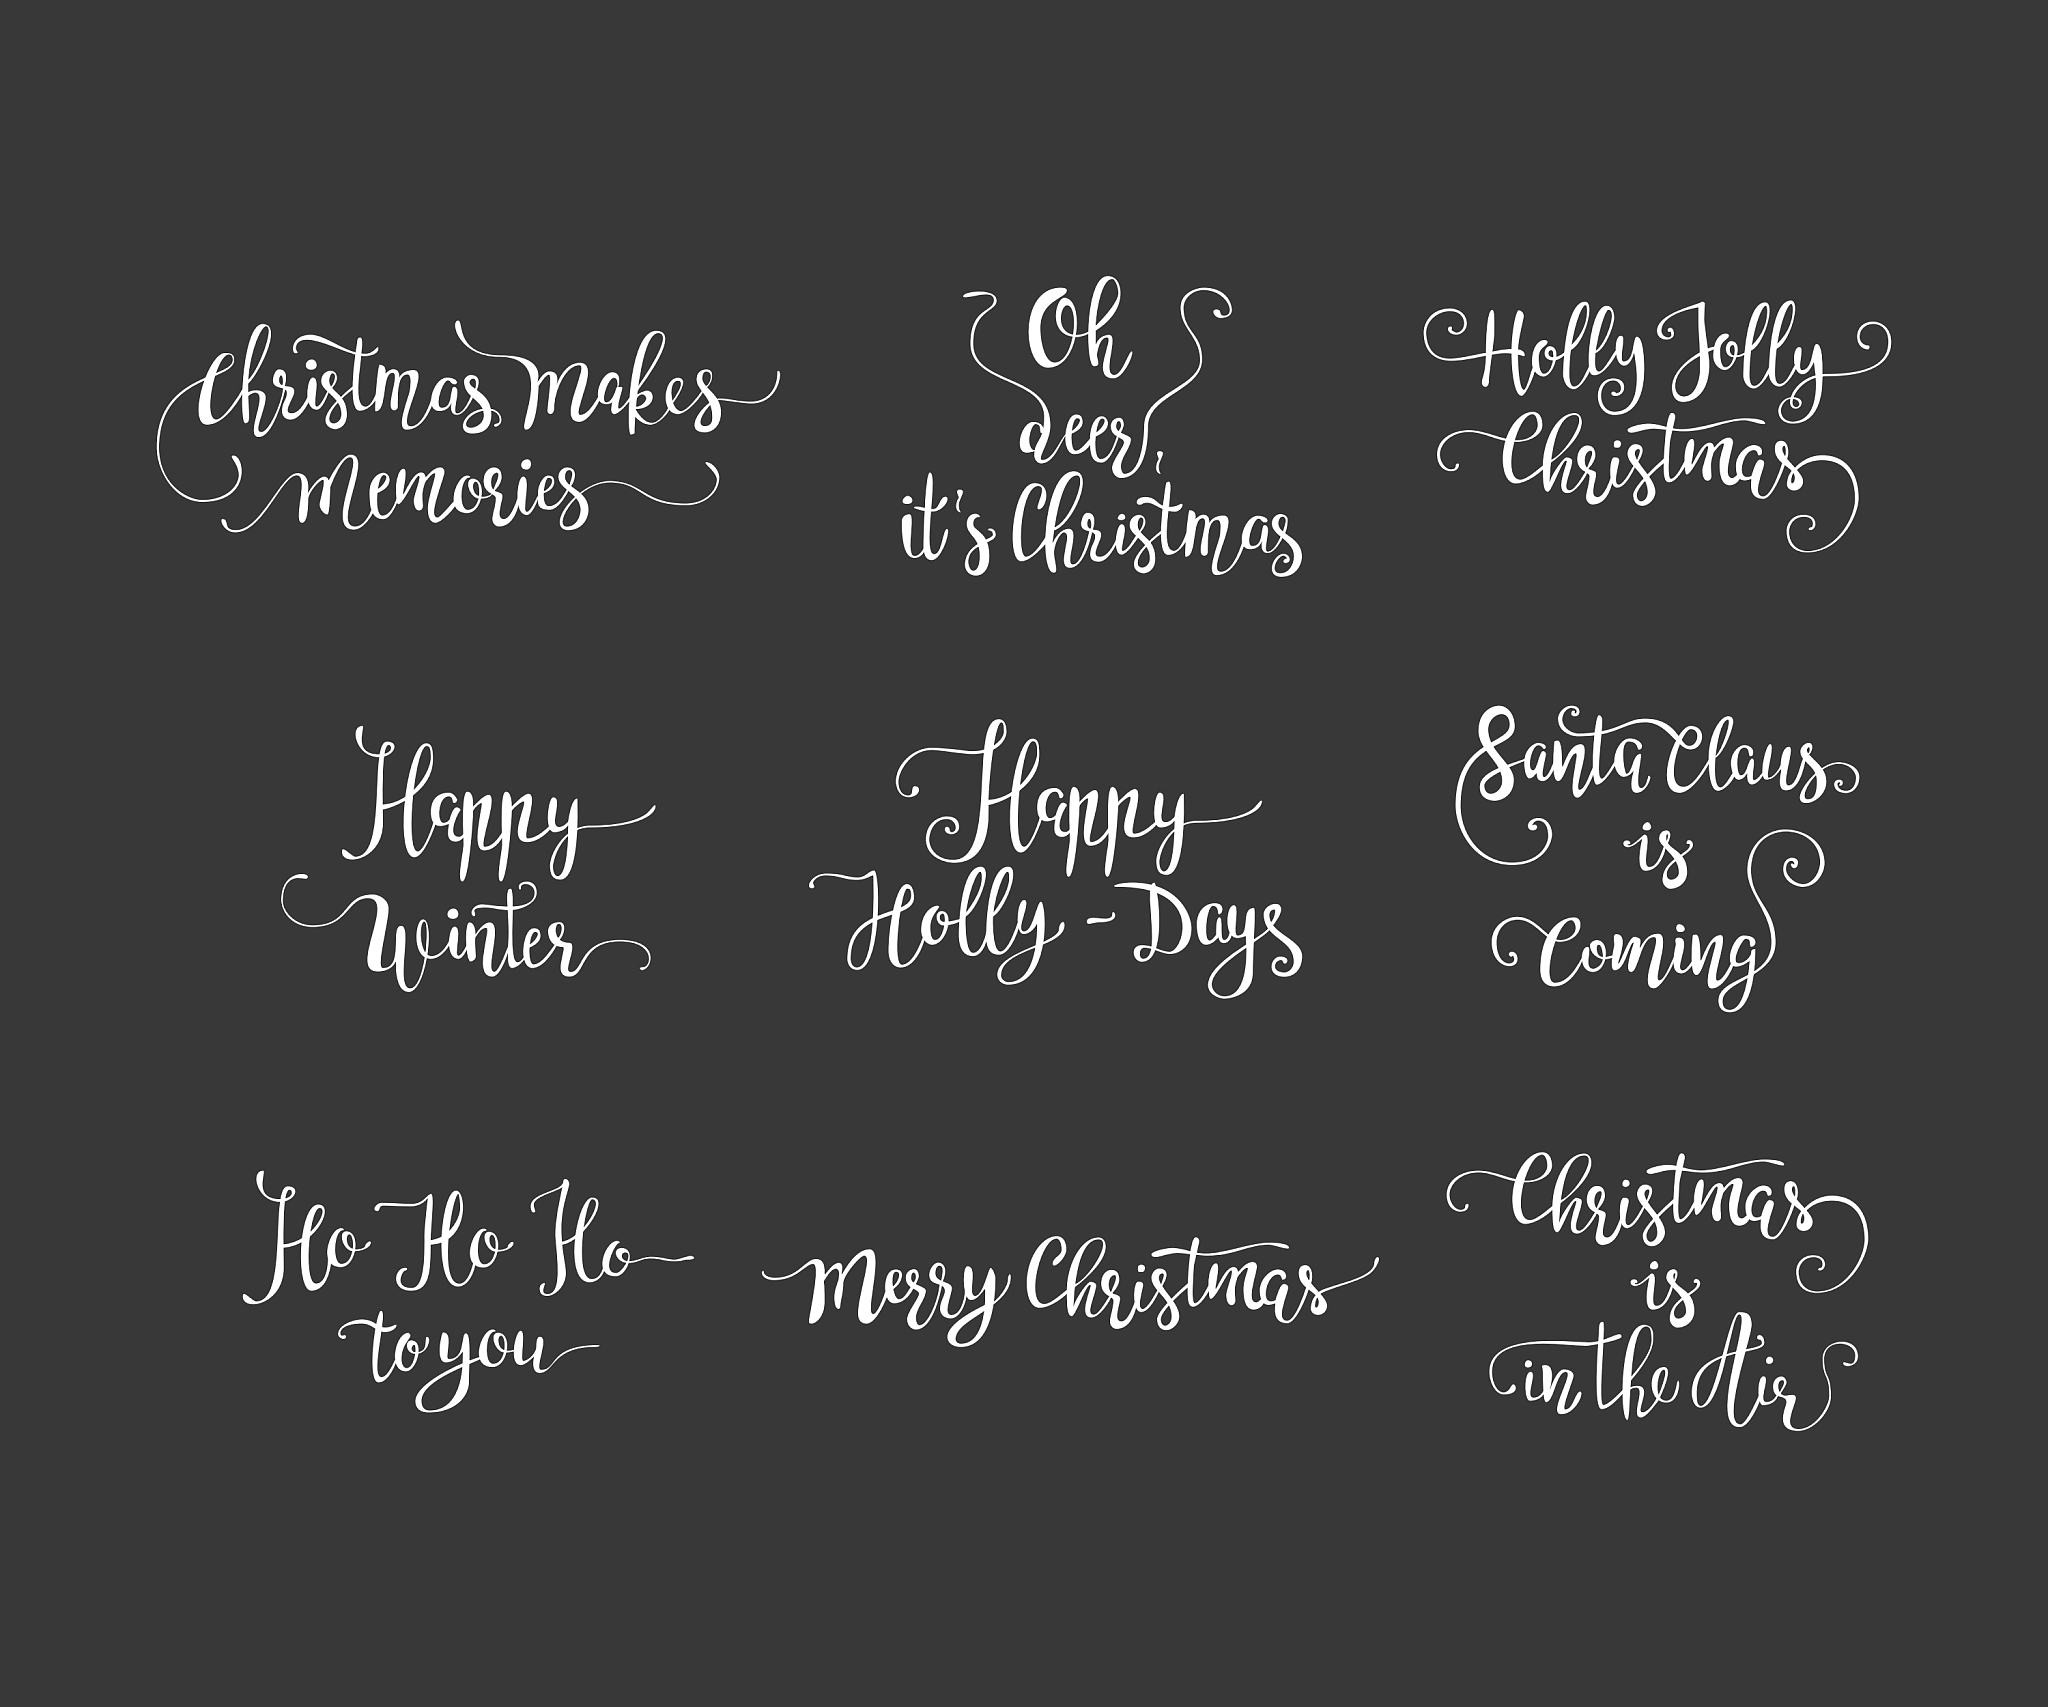 Christmas Makes
Memories
Oh
deer,
it's Christmas
Holly Jolly
Christmas
Happy
Winter
Happy
Holly-Days
Santa Claus
is
Coming
Ho Ho Ho
to you
Merry Christmas
Christmas
is
in the Air